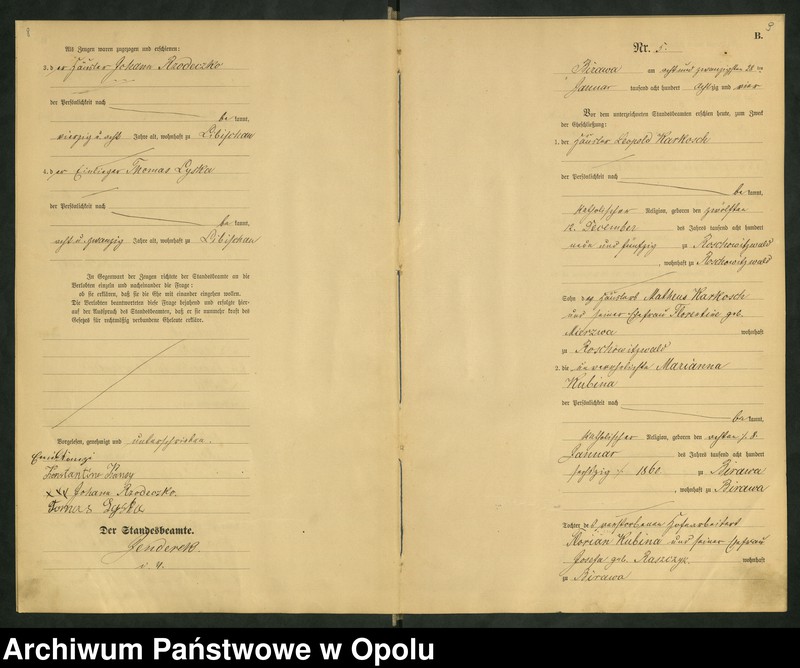 Als Zeugen waren zugezogen und erschienen:
3. der Häusler Johann Rzodeczko
der Persönlichkeit nach
bekannt,
vierzig u acht Jahre alt, wohnhaft zu Libischau
4. der Einlieger Thomas Lyska
der Persönlichkeit nach
bekannt,
acht u zwanzig Jahre alt, wohnhaft zu Libischau
In Gegenwart der Zeugen richtete der Standesbeamte an die
Verlobten einzeln und nacheinander die Frage:
ob sie erklären, daß sie die Ehe mit einander eingehen wollen.
Die Verlobten beantworteten diese Frage bejahend und erfolgte hier-
auf der Ausspruch des Standesbeamten, daß er sie nunmehr kraft des
Gesetzes für rechtmäßig verbundene Eheleute erkläre.
Vorgelesen, genehmigt und unterschrieben.
Konstantine
xxx Johann Rzodeczko.
Tomas Lyska
Der Standesbeamte.
Jenderek.
B.
Nr. 5.
Birawa am acht und zwanzigsten 28 ten
Januar tausend acht hundert achtzig und vier
Vor dem unterzeichneten Standesbeamten erschien heute, zum Zweck
der Eheschließung:
1. der Häusler Leopold Karkosch
der Persönlichkeit nach
bekannt,
katholischer Religion, geboren den zwölften
12. Dezember des Jahres tausend acht hundert
neun und fünfzig zu Roschowitzwald
, wohnhaft zu Roschowitzwald
Sohn des Häuslers Matheus Karkosch
und seiner Ehefrau Florentine geb.
Mierzwa wohnhaft
zu Roschowitzwald
2. die unverehelichte Marianna
Kubina
der Persönlichkeit nach
bekannt,
katholischer Religion, geboren den achten
Januar des Jahres tausend acht hundert
sechzig 1860 zu Birawa
, wohnhaft zu Birawa
Tochter des verstorbenen Hofearbeiters
Florian Kubina und seiner Ehefrau
Josefa geb. Raszczyk. wohnhaft
zu Birawa
Archiwum Państwowe w Opolu